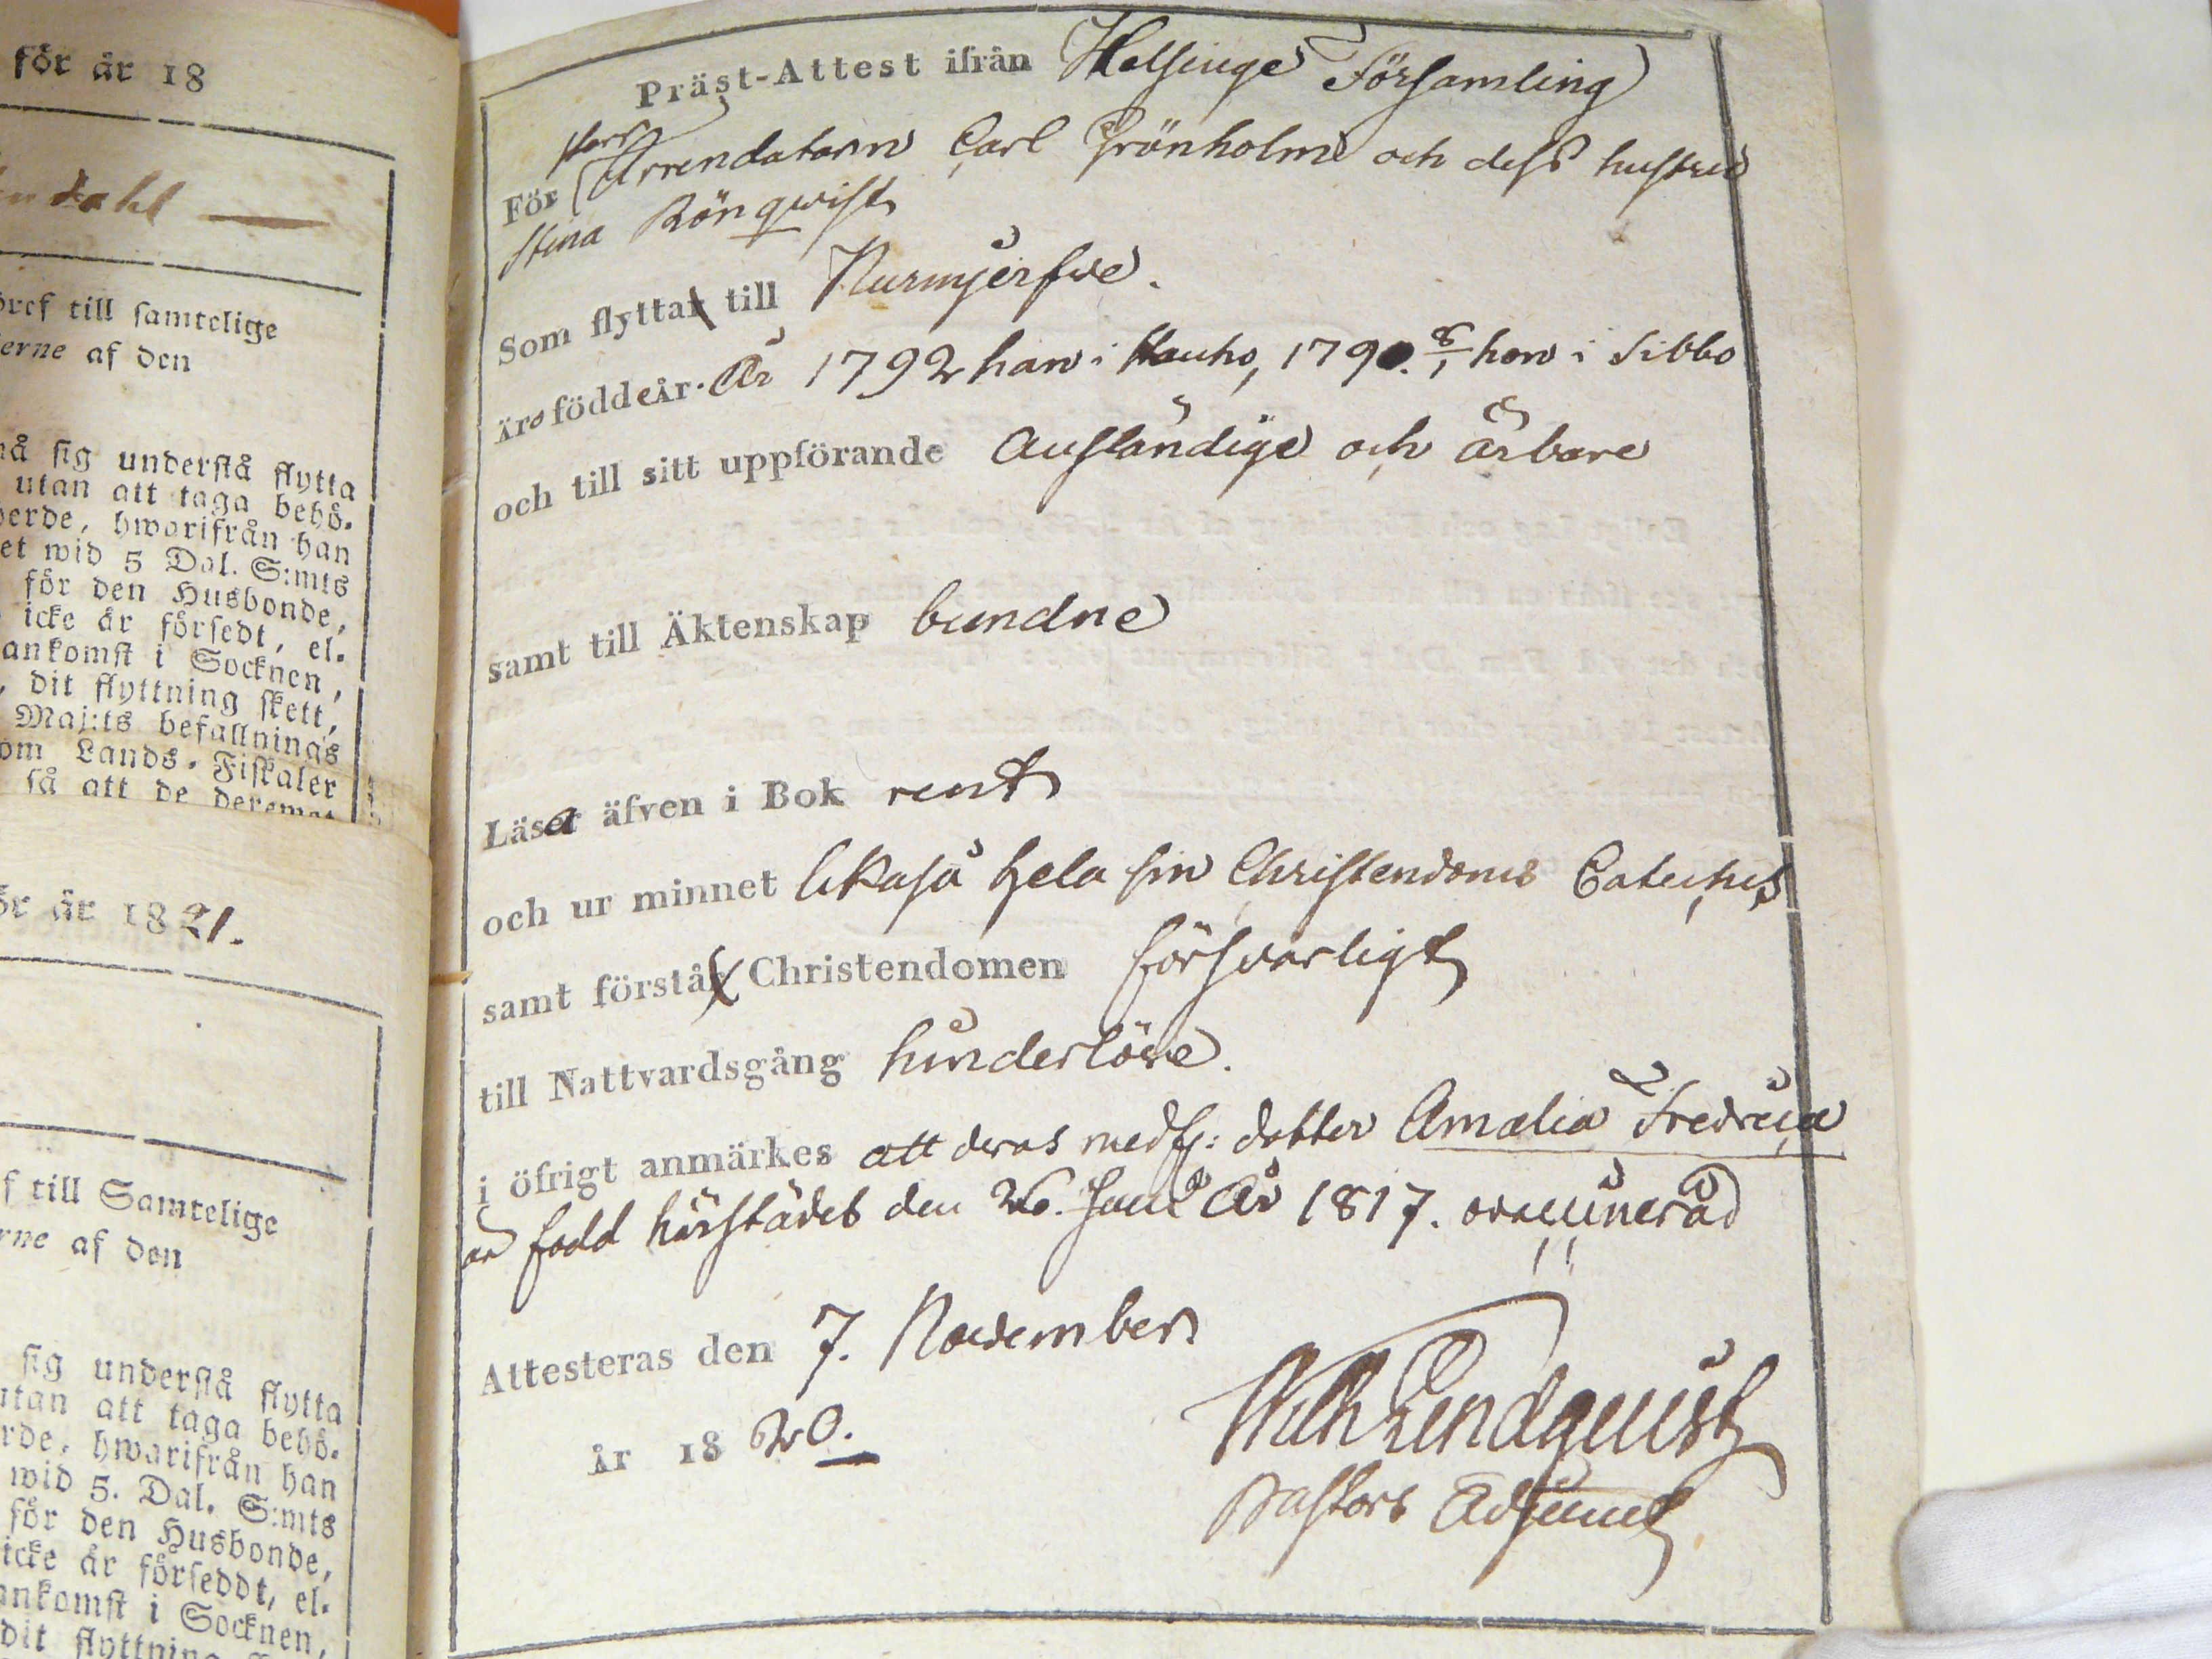 för år 18
dahl
bref till samtelige
erne af den
må sig understå flytta
utan att taga behö-
verde, hwarifrån han
et wid 5 Dal. S:mts
för den Husbonde,
icke är försedt, el-
ankomst i Socknen,
, dit flyttning skett,
Maj:ts befallnings
om Lands-Fiskaler
så att de deremot
ör år 1821.
f till Samtelige
rne af den
sig understå flytta
utan att taga behö-
rde, hwarifrån han
wid 5. Dal. S:mts
för den Husbonde,
icke är förseddt, el-
ankomst i Socknen,
dit flyttning
Präst-Attest ifrån Helsinge Församling
För Arrendatorn Carl Grönholm och dess hustru
Stina Rönqwist
Som flyttar till Nurmijerfwe.
äro födde år. År 1792 han i Hauho, 1790. 8/1 hon i Sibbo
och till sitt uppförande anständige och ärbare
samt till Äktenskap bundne
Läsa äfven i Bok rent
och ur minnet likaså hela sin Christendoms Cateches
samt förstå Christendomen försvarligt
till Nattvardsgång hinderlöse.
i öfrigt anmärkes att deras medf: dotter Amalia Fredrica
är född härstädes den 26. Juni År 1817. ovaccinerad
Attesteras den 7. November
år 1820.
Wilh Lindqwist
Pastors Adjunct